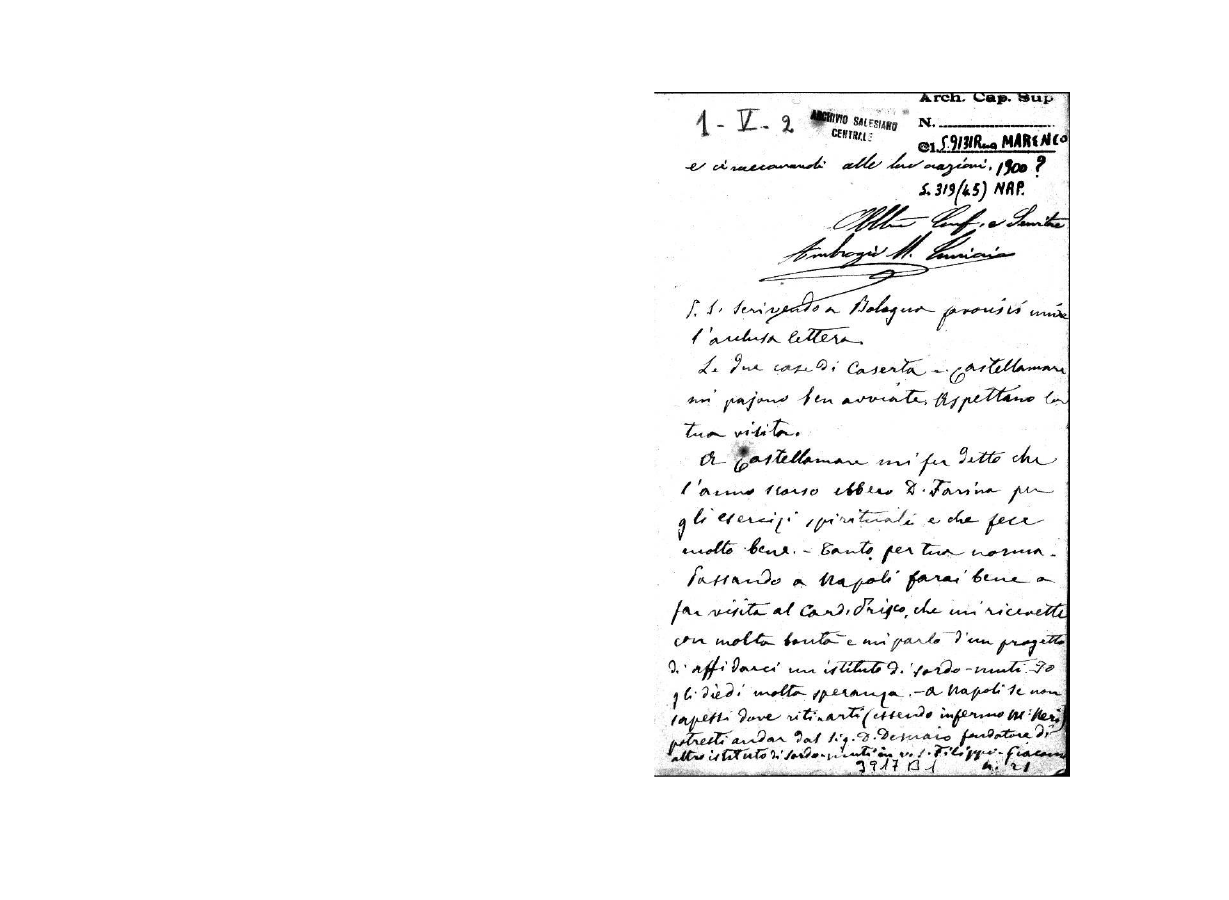 Arch. Cap. Sup
1 - V - 2
ARCHIVIO SALESIANO
CENTRALE
N.
Cl. S.9131 MARENCO
e ci raccomandi alle loro orazioni. 1900?
S. 319(45) NAP.
Conf. e Servitore
Ambrogio M.
P. S. Scrivendo a Bologna favorisci unire
l'acclusa lettera.
Le due case di Caserta e Castellamare
mi pajono ben avviate. Aspettano la
tua visita.
A Castellamare mi fu detto che
l'anno scorso ebbero D. Farina per
gli esercizi spirituali e che fece
molto bene. - Tanto per tua norma.
Passando a Napoli farai bene a
far visita al Card. Prisco, che mi ricevette
con molta bontà e mi parlò d'un progetto
di affidarci un istituto di sordo-muti. Io
gli diedi molta speranza. - A Napoli se non
sapessi dove ritirarti (essendo infermo M. Neri)
potresti andar dal sig. D. fondatore di
altro istituto di sordo-muti in v. S. Filippo - Giacomo
3917 B1 n. 21